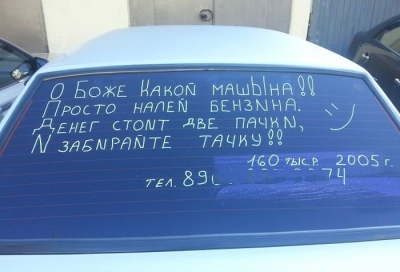 О Боже Какой машЫна!!
Просто налей бензина.
Денег стоит две пачки,
И забирайте тачку!!
160 тыс.р. 2005 г.
тел.